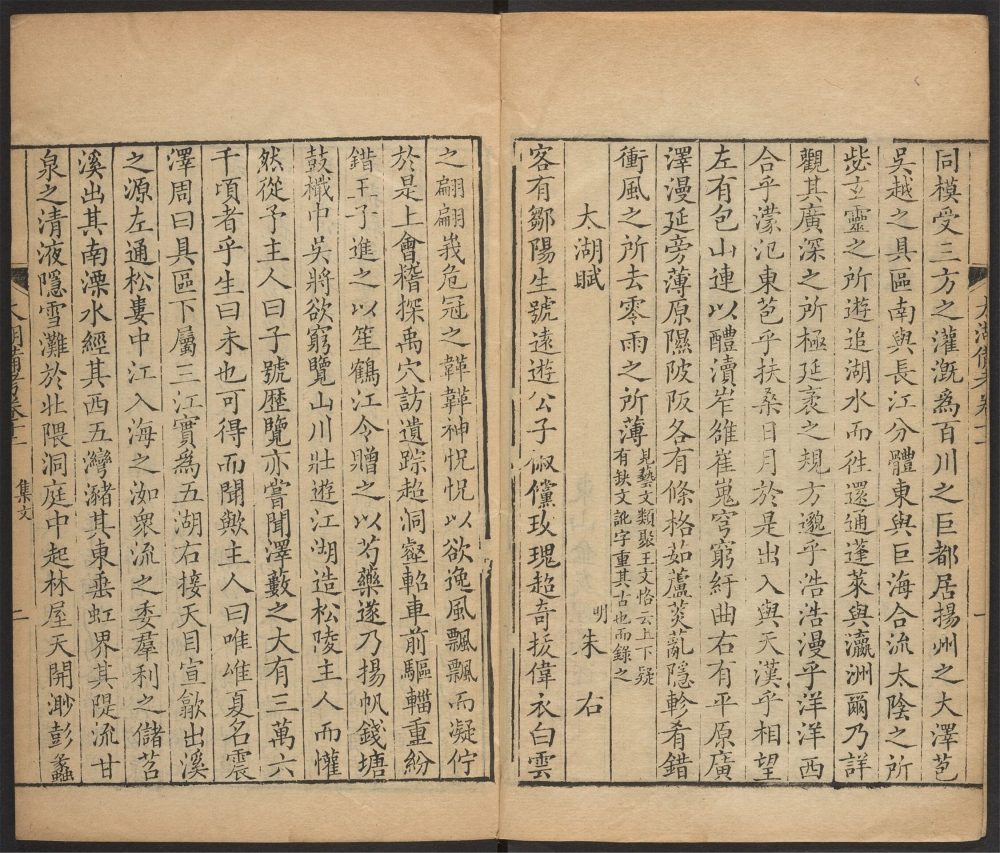 同模受三方之灌漑為百川之巨都居揚州之大澤苞
吳越之具區南與長江分體東與巨海合流太陰之所
毖玄靈之所遊追湖水而徃還通蓬萊與瀛洲爾乃詳
觀其廣深之所極延袤之規方邈乎浩浩漫乎洋洋西
合乎濛汜東苞乎扶桑日月於是出入與天漢乎相望
左有包山連以醴瀆岝䧿崔嵬穹窮紆曲右有平原廣
澤漫延旁薄原隰陂阪各有條格如蘆菼亂隱軫肴錯
衝風之所去零雨之所薄
見藝文類聚王文恪云上下疑
有缺文訛字重其古也而錄之
太湖賦
明
朱右
客有鄒陽生號遠遊公子俶儻玫瑰超奇拔偉衣白雲
之翩翩峩危冠之韡韡神怳怳以欲逸風飄飄而凝佇
於是上會稽探禹穴訪遺踪超洞壑軺車前驅輜重紛
錯王子進之以笙鶴江令贈之以芍藥遂乃揚帆錢塘
鼓檝中吳將欲窮覽山川壯遊江湖造松陵主人而懽
然從予主人曰子號歷覽亦嘗聞澤藪之大有三萬六
千頃者乎生曰未也可得而聞歟主人曰唯唯夏名震
澤周曰具區下屬三江實為五湖右接天目宣歙出溪
之源左通松婁中江入海之洳衆流之委羣利之儲苕
溪出其南溧水經其西五灣瀦其東垂虹界其隄流甘
泉之清液隱雪灘於壯隈洞庭中起林屋天開渺彭蠡
太湖備考卷十二
集文
二